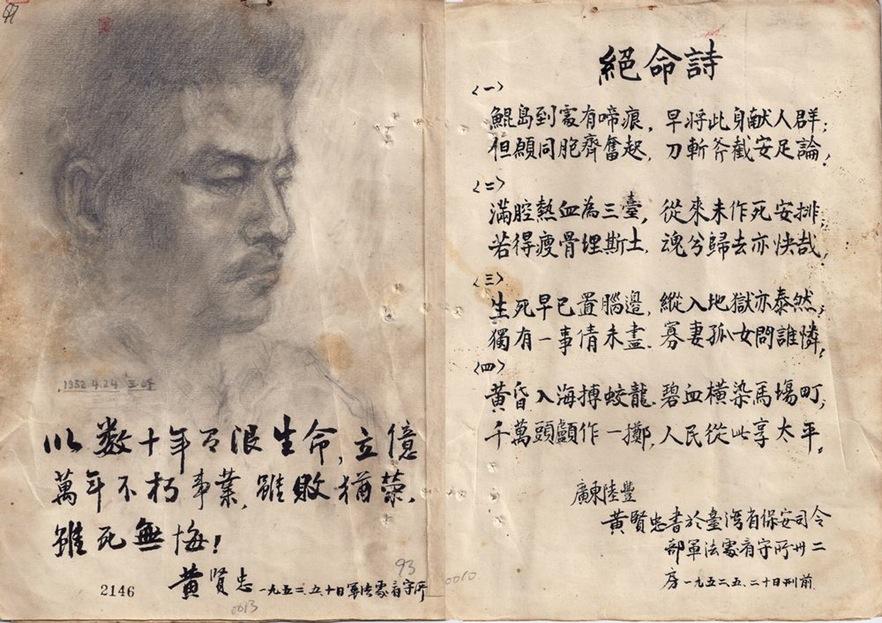 1952.4.24
以数十年有限生命,立億
萬年不朽事業,雖敗猶榮,
雖死無悔!
黃賢忠 一九五二.五.十日軍法處看守所
2146
93
0013
絕命詩
〈一〉
鯤島到處有啼痕,早將此身献人群;
但願同胞齊奮起,刀斬斧截安足論,
〈二〉
滿腔熱血為三臺,從來未作死安排,
若得瘦骨埋斯土,魂兮歸去亦快哉,
〈三〉
生死早已置腦邊,縱入地獄亦泰然;
獨有一事情未盡.寡妻孤女問誰憐,
〈四〉
黃昏入海搏蛟龍.碧血橫染馬場町;
千萬頭顱作一擲,人民從此享太平。
廣東陸豐
黃賢忠書於臺灣省保安司令
部軍法處看守所卅二
房一九五二.五.二十日刑前
0010